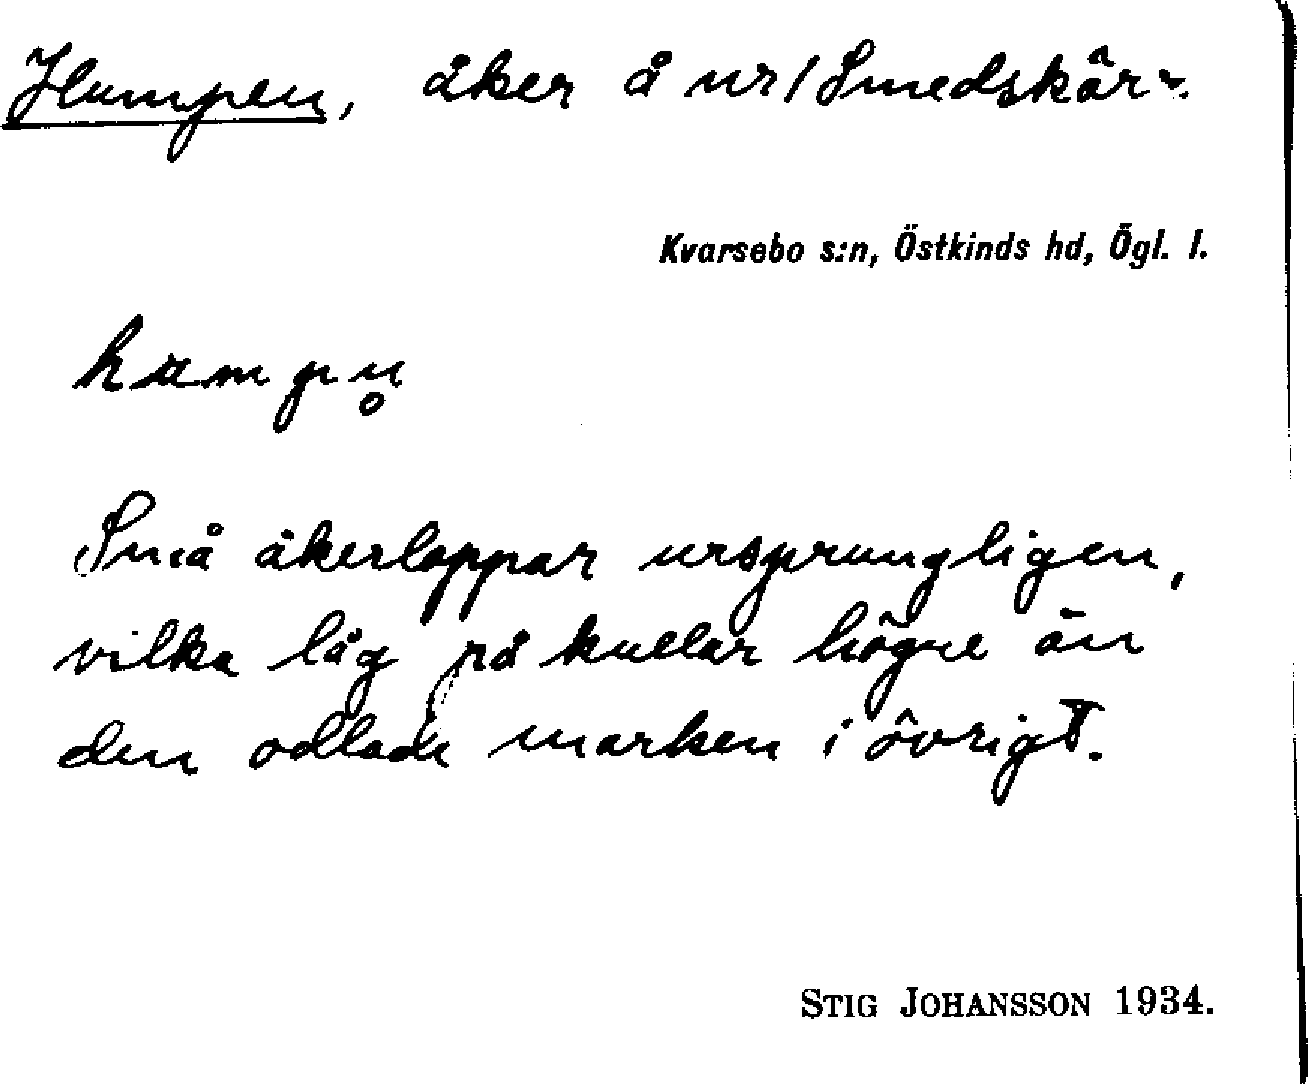 Humpen, åker å nr 1 Smedskär.
Kvarsebo s:n, Östkinds hd, Ögl. l.
humpn̥
Små åkerlappar ursprungligen,
vilka låg på kullar högre än
den odlade marken i övrigt.
STIG JOHANSSON 1934.